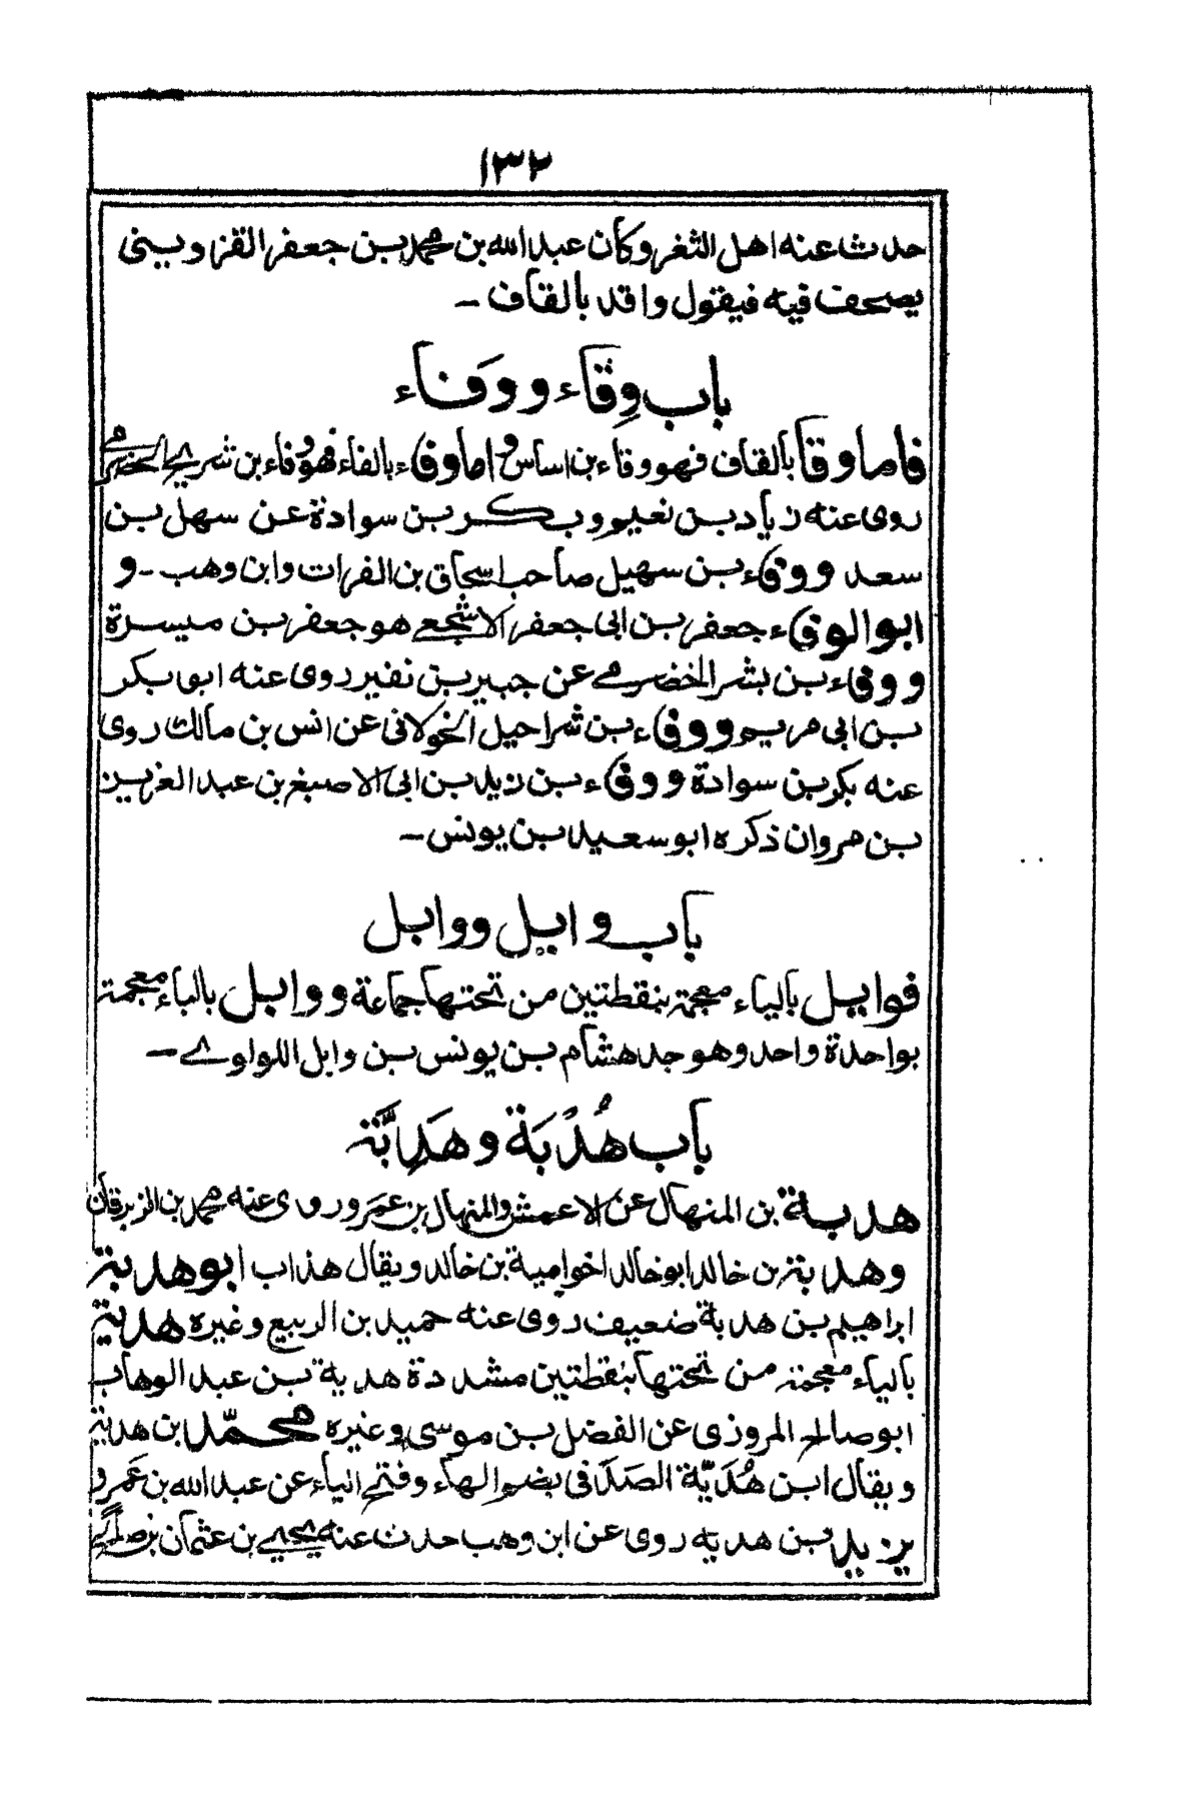 ١٣٢
حدث عنه اهل الثغر وكان عبد الله بن محمد بن جعفر القزاويني
يصحف فيه فيقول واقد بالقاف -
باب وِقاء و وَفاء
فاما وقا بالقاف فهو وقاء بن اساس و اما وفاء بالفاء فهو وفاء بن شريح الحضرمي
روى عنه زياد بن نعيم وبكر بن سوادة عن سهل بن
سعد ووفاء بن سهيل صاحب اسحاق بن الفرات وابن وهب - و
ابو الوفاء جعفر بن ابي جعفر الاشجعي هو جعفر بن ميسرة
ووفاء بن بشر الحضرمي عن جبير بن نفير روى عنه ابو بكر
بن ابي مريم ووفاء بن شراحيل الخولاني عن انس بن مالك روى
عنه بكر بن سوادة ووفاء بن زيد بن ابي الاصبغ بن عبد العزيز
بن مروان ذكره ابو سعيد بن يونس -
باب وايل ووابل
فوايل بالياء معجمة بنقطتين من تحتها جماعة ووابل بالباء معجمة
بواحدة واحد وهو جد هشام بن يونس بن وابل اللولوي -
باب هُدْبَة و هَدِيَّة
هدبة بن المنهال عن الاعمش والمنهال بن عمرو روى عنه محمد بن الزبرقان
وهدبة بن خالد ابو خالد اخو امية بن خالد ويقال هداب ابو هدبة
ابراهيم بن هدبة ضعيف روى عنه حميد بن الربيع وغيره هدية
بالياء معجمة من تحتها بنقطتين مشددة هدية بن عبد الوهاب
ابو صالح المروزي عن الفضل بن موسى وغيره محمّد بن هدية
ويقال ابن هُدَيّة الصَدَفي بضم الهاء وفتح الياء عن عبد الله بن عَمرو
يزيد بن هدية روى عن ابن وهب حدث عنه يحيى بن عثمان بن صالح